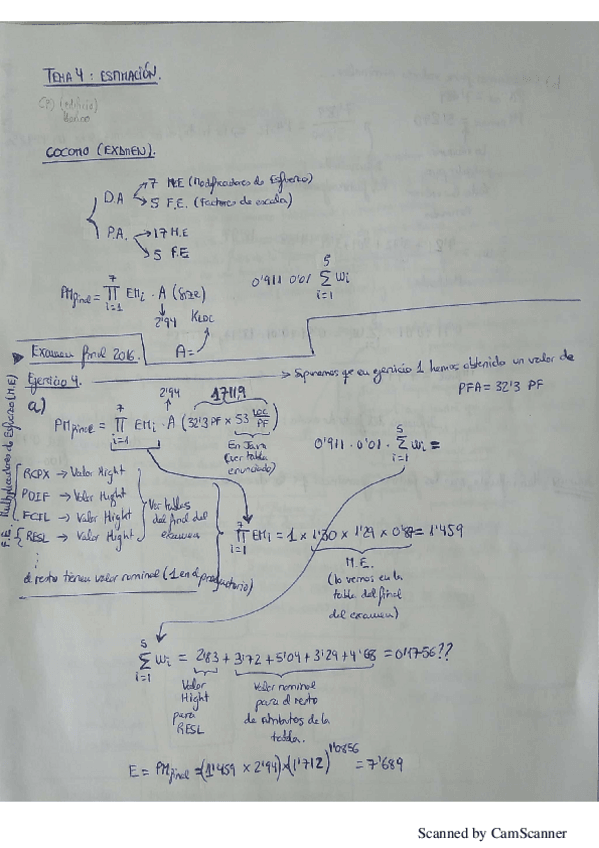 TEMA 4: ESTIMACIÓN.
COCOMO (EXAMEN).
D.A
7 M.E (Modificadores de Esfuerzo)
5 F.E. (Factores de escala)
P.A.
17 M.E
5 F.E
PMfinal = 7 ∏ i=1 EMi · A (Size)
0'911 0'01 5 ∑ i=1 Wi
2'94 KLDC
A=
Examen final 2016.
Ejercicio 4.
Suponemos que en ejercicio 1 hemos obtenido un valor de
PFA = 32'3 PF
a)
2'94
1'7119
PMfinal = 7 ∏ i=1 EMi · A (32'3 PF × 53 LOC/PF)
0'911 · 0'01 · 5 ∑ i=1 Wi =
En Java
(ver tabla
enunciado)
Multiplicadores de Esfuerzo (M.E)
RCPX → Valor Hight
PDIF → Valor Hight
FCIL → Valor Hight
F.E. RESL → Valor Hight
Ver tablas
del final del
examen
el resto tienen valor nominal (1 en el productorio)
7 ∏ i=1 EMi = 1 × 1'30 × 1'29 × 0'87 = 1'459
M.E.
(lo vemos en la
tabla del final
del examen)
5 ∑ i=1 Wi = 2'83 + 3'72 + 5'04 + 3'29 + 4'68 = 0'1756??
Valor
Hight
para
RESL
Valor nominal
para el resto
de atributos de la
tabla.
E = PMfinal = (1'459 × 2'94) × (1'712)^1'0856 = 7'689
Scanned by CamScanner